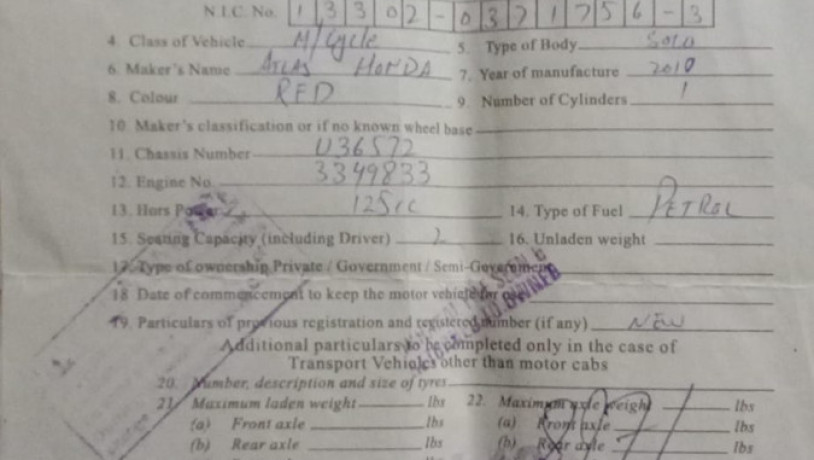 N.I.C. No. 13302-0371756-3
4. Class of Vehicle M/Cycle 5. Type of Body Solo
6. Maker's Name ATLAS HONDA 7. Year of manufacture 2010
8. Colour RED 9. Number of Cylinders 1
10. Maker's classification or if no known wheel base
11. Chassis Number U36572
12. Engine No. 3349833
13. Hors Power 125cc 14. Type of Fuel PETROL
15. Seating Capacity (including Driver) 2 16. Unladen weight
17. Type of ownership Private / Government / Semi-Government
18 Date of commencement to keep the motor vehicle for
19. Particulars of previous registration and registered number (if any) NEW
Additional particulars to be completed only in the case of
Transport Vehicles other than motor cabs
20. Number, description and size of tyres
21. Maximum laden weight lbs 22. Maximum axle weight lbs
(a) Front axle lbs (a) Front axle lbs
(b) Rear axle lbs (b) Rear axle lbs